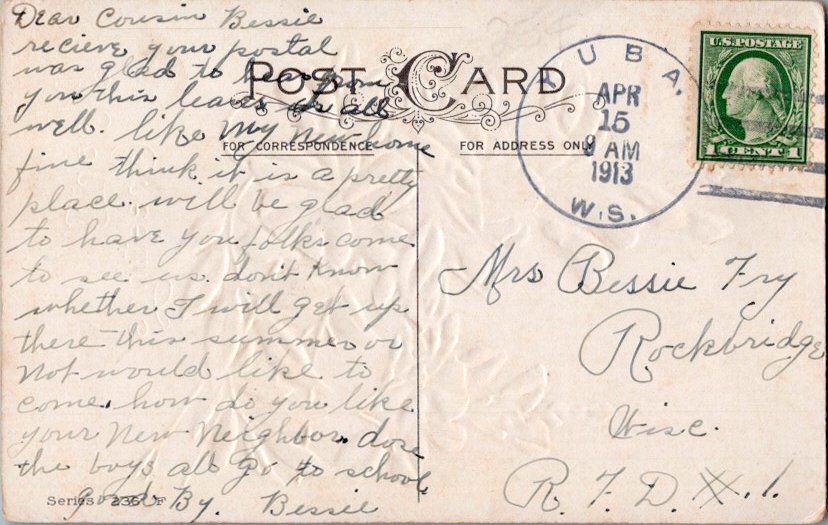 Dear Cousin Bessie
recieve your postal
was glad to hear from
you this leaves us all
well. like My New home
fine think it is a pretty
place. will be glad
to have you folks come
to see us. don't know
whether I will get up
there this summer or
Not would like to
come. how do you like
your New Neighbor. dose
the boys all go to school
good By. Bessie
POST CARD
FOR CORRESPONDENCE
FOR ADDRESS ONLY
UBA.
APR
15
8 AM
1913
W.S.
U.S. POSTAGE
1 CENT 1
Mrs Bessie Fry
Rockbridge
Wisc.
R. F. D. #.1.
Series 235 F